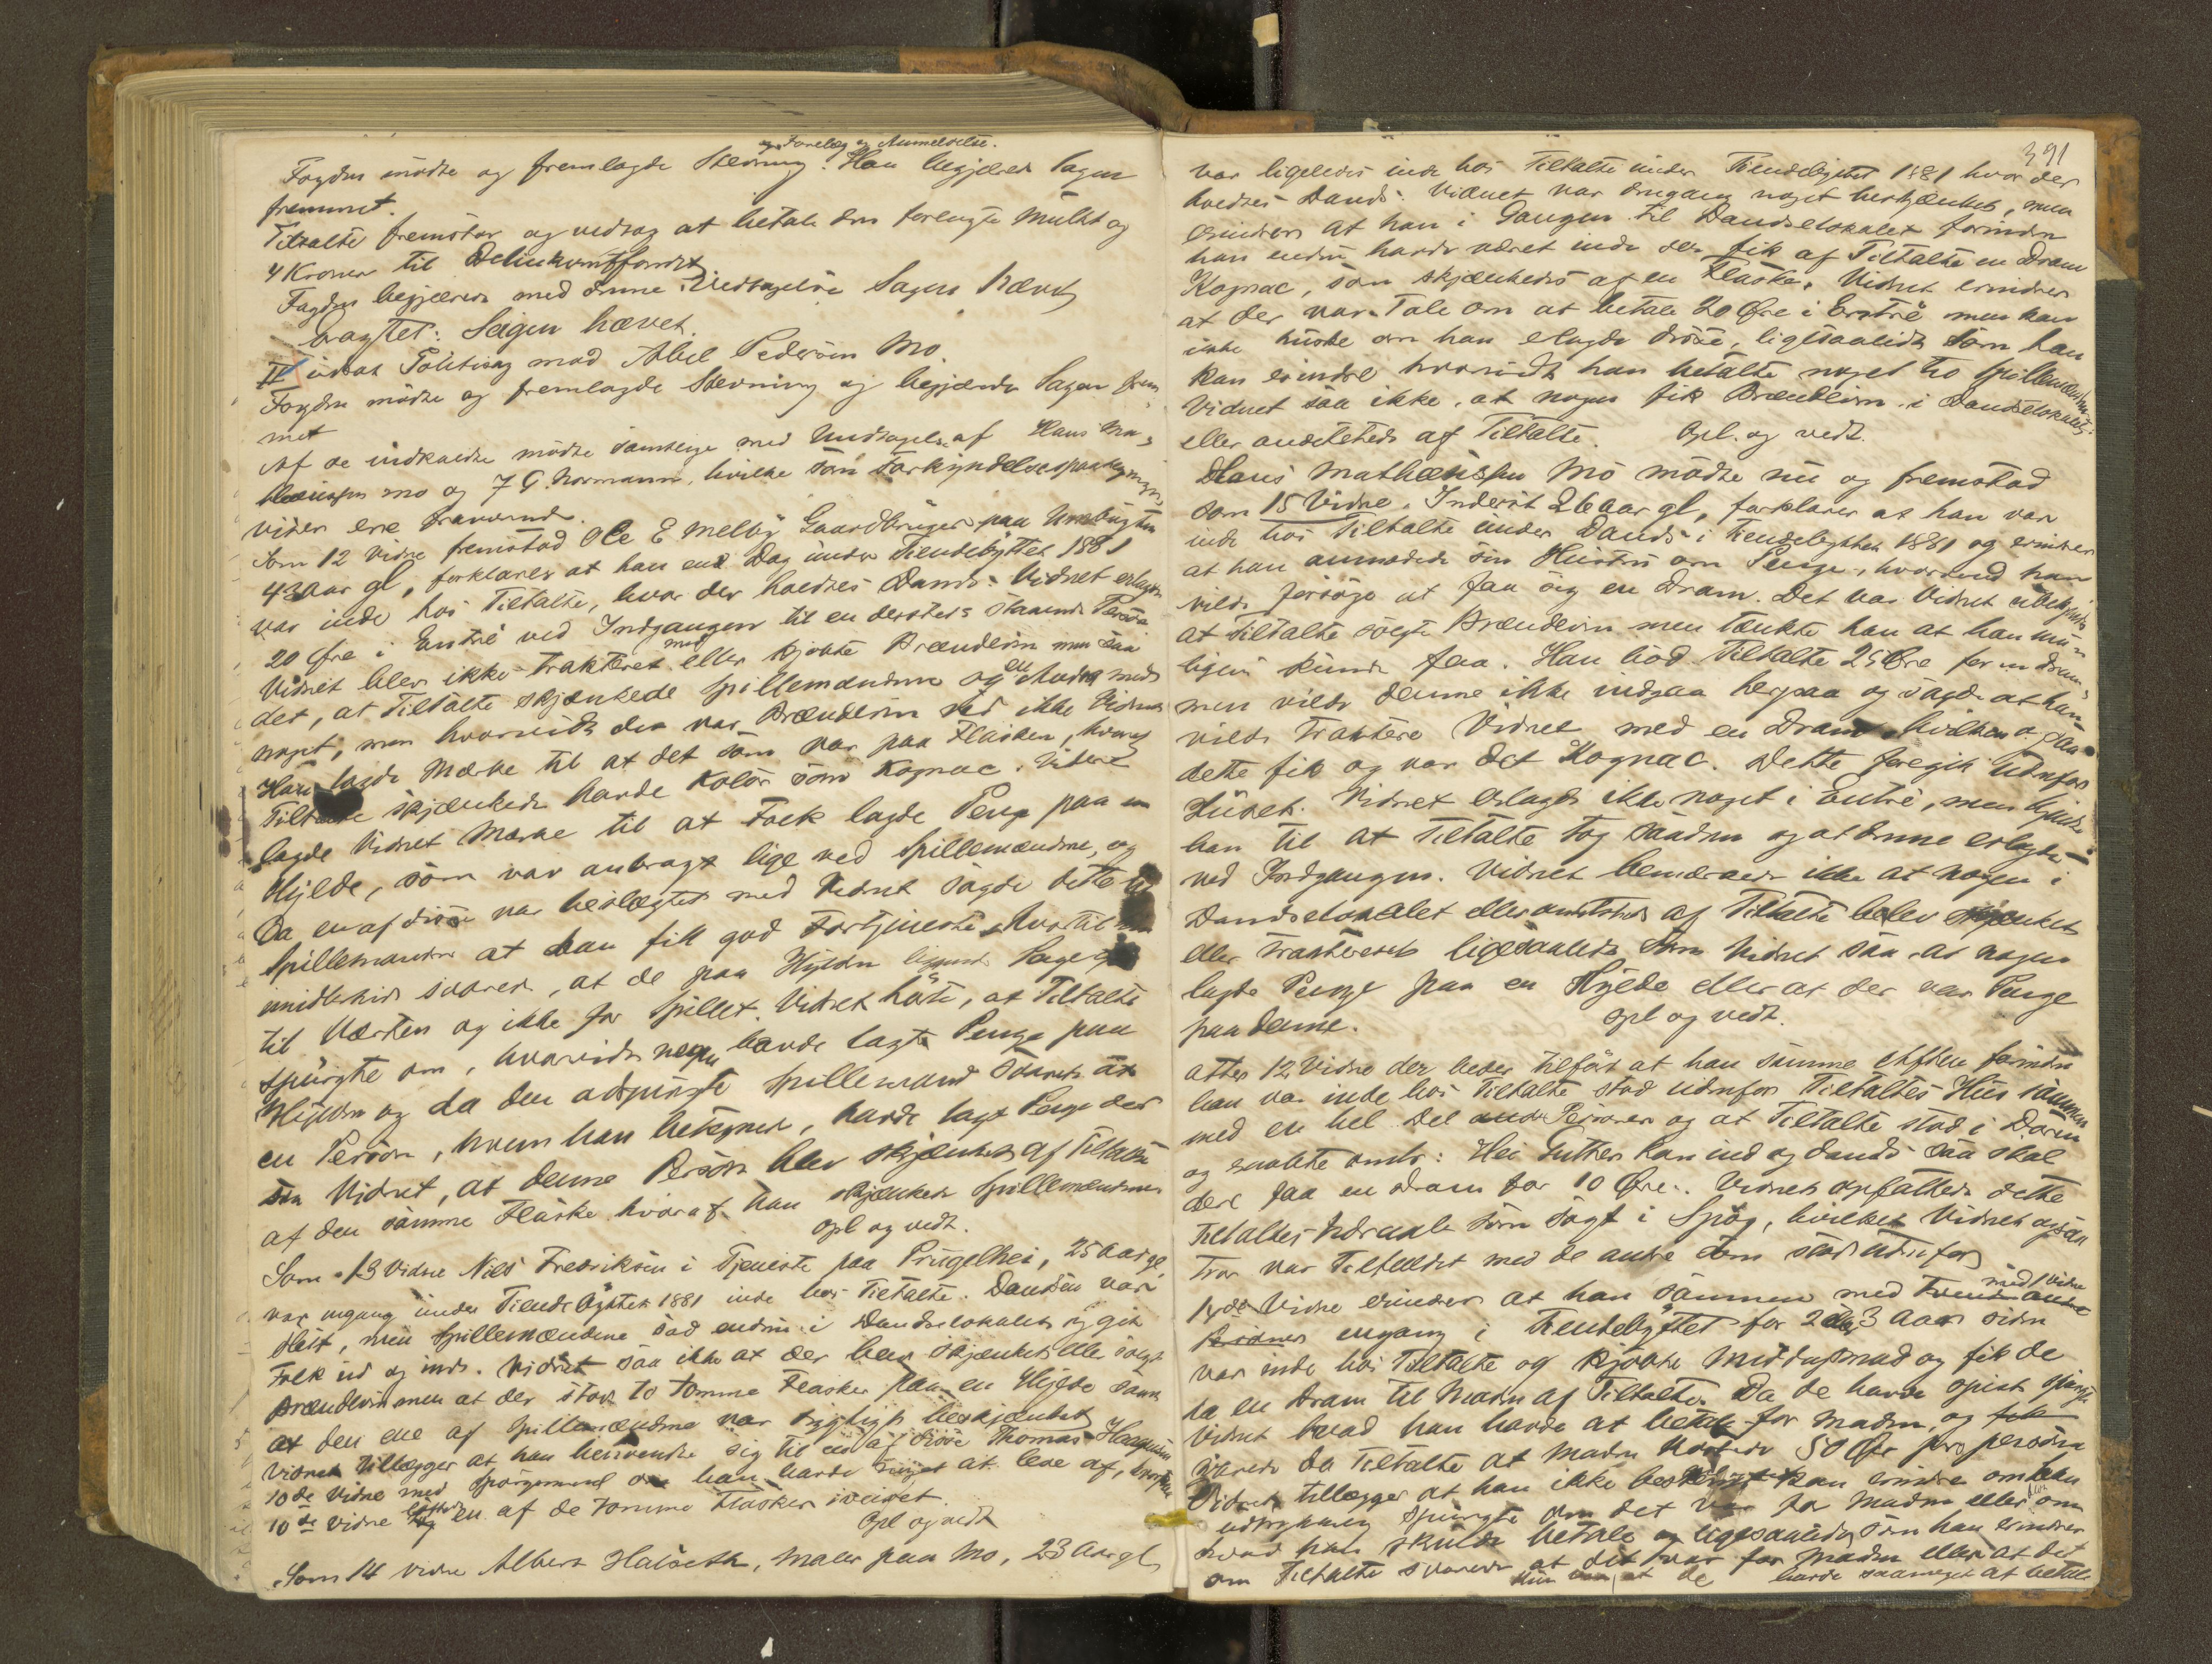 og Forelæg og Anmeldelse.
Fogden mødte og fremlagde Stevning. Han begjærede Sagen
fremmet.
Tiltalte fremstod og vedtog at betale den forlagte Mulkt og
4 Kroner til Delinkventfondet
Fogden begjærede med denne Vedtagelse Sagen hævet
bragtes: Sagen hævet.
II udsat Politisag mod Abel Pedersen Mo.
Fogden mødte og fremlagde Stevning og begjærede Sagen frem
met
Af de indkaldte mødte samtlige med Undtagelse af Hans Ma
thæussen Mo og J G. Normann, hvilke som Forkyndelsespaategningen
viser ere fraværende.
Som 12 Vidne fremstod Ole E Melby Gaardbruger paa
43 Aar gl, forklarer at han en Dag under Tiendebyttet 1881
var inde hos Tiltalte, hvor der holdtes Dands. Vidnet erlagde
20 Øre i Entré ved Indgangen til en dersteds staaende Person
Vidnet blev ikke trakteret med eller kjøbte Brændevin men saa
det, at Tiltalte skjænkede Spillemændene og et Andre med
noget, men hvorvidt det var Brændevin ved ikke Vidnet
Han lagde Mærke til at det som var paa Flasken, hvoraf
Tiltalte skjænkede havde Kolør som Kognac. Videre
lagde Vidnet Mærke til at Folk lagde Penge paa en
Hylde, som var anbragt lige ved Spillemændene, og
Da en af disse var beslægtet med Vidnet sagde dette til
Spillemanden at han fik god Fortjeneste, hvortil han
imidlertid svarede, at de paa Hylden liggende Penge gik
til Værten og ikke for Spillet. Vidnet hørte, at Tiltalte
spurgte om, hvorvidt nogen havde lagt Penge paa
Hylden og da den adspurgte Spillemand svarede at
en Person, hvem han betegnede, havde lagt Penge der
saa Vidnet, at denne Person blev skjænket af Tiltalte
af den samme Flaske hvoraf han skjænkede Spillemændene
Opl og vedt.
Som 13 Vidne Nils Fredriksen i Tjeneste paa Prügelhei, 25 Aar gl
var engang under Tiendebyttet 1881 inde hos Tiltalte. Dandsen var
slut, men Spillemændene sad endnu i Dandselokalet og gik
Folk ud og ind. Vidnet saa ikke at der blev skjænket eller solgt
Brændevin men at der stod to tomme Flasker paa en Hylde samt
at den ene af Spillemændene var dygtigt beskjænket
Vidnet tillægger at han henvendte sig til en af disse Thomas
10de Vidne med Spørgsmaal om han havde noget at leve af, hvorpaa
10de Vidne løftede en af de tomme Flasker iveiret.
Opl og vedt
Som 14 Vidne Albert Halseth, Maler paa Mo, 23 Aar gl
391
var ligeledes inde hos Tiltalte under Tiendebyttet 1881 hvor der
holdtes Dands. Vidnet var dengang noget beskjænket, men
erindrer at han i Gangen til Dandselokalet forinden
han endnu havde været inde der fik af Tiltalte en Dram
Kognac, som skjænkedes af en Flaske. Vidnet erindrer
at der var Tale om at betale 20 Øre i Entré men kan
ikke huske om han erlagde disse, ligesaalidt som han
kan erindre hvorvidt han betalte noget til Spillemændene
Vidnet saa ikke, at nogen fik Brændevin i Dandselokalet
eller andetsteds af Tiltalte. Opl. og vedt.
Hans Mathæussen Mo mødte nu og fremstod
som 15 Vidne. Inderst 26 Aar gl, forklarer at han var
inde hos Tiltalte under Dands i Tiendebyttet 1881 og erindrer
at han anmodede sin Hustru om Penge, hvormed han
vilde forsøge at faa sig en Dram. Det var Vidnet ubekjendt
at Tiltalte solgte Brændevin men tænkte han at han mu
ligens kunde faa. Han bød Tiltalte 25 Øre for en Dram
men vilde denne ikke indgaa herpaa og sagde at han
vilde traktere Vidnet med en Dram hvilken og saa
dette fik og var det Kognac. Dette foregik udenfor
Huset. Vidnet erlagde ikke noget i Entré, men kjendte
han til at Tiltalte tog saadan og at denne erlagdes
ved Indgangen. Vidnet bemærkede ikke at nogen i
Dandselokalet eller andetsteds af Tiltalte blev skjænket
eller trakteret ligesaalidt som Vidnet saa at nogen
lagde Penge paa en Hylde eller at der var Penge
paa denne. Opl og vedt.
atter 12 Vidne der beder tilført at han samme Aften forinden
han var inde hos Tiltalte stod udenfor Tiltaltes Hus sammen
med en hel Del andre Personer og at Tiltalte stod i Døren
og raabte omtr: Hei Gutter kom ind og dands saa skal
dere faa en Dram for 10 Øre. Vidnet opfattede dette
Tiltaltes Udraab som sagt i Spøg, hvilket Vidnet ogsaa
tror var Tilfældet med de andre som stod udenfor
14de Vidne erindrer at han sammen med tvende andre med 1 Vidne
Personer engang i Tiendebyttet for 2 eller 3 Aar siden
var inde hos Tiltalte og kjøbte Middagsmad og fik de
da en Dram til Maden af Tiltalte. Da de havde spist spurgte
Vidnet hvad han havde at betale for Maden, og fik
svarede da Tiltalte at Maden kostede 50 Øre pro persona
Vidnet tillægger at han ikke bestemt kan erindre om han
udtrykkelig spurgte om det var for Maden eller om
hvad han skulde betale og ligesaalidt som han erindrer
om Tiltalte svarede at det var for Maden eller at det
kun var, at de havde saameget at betale